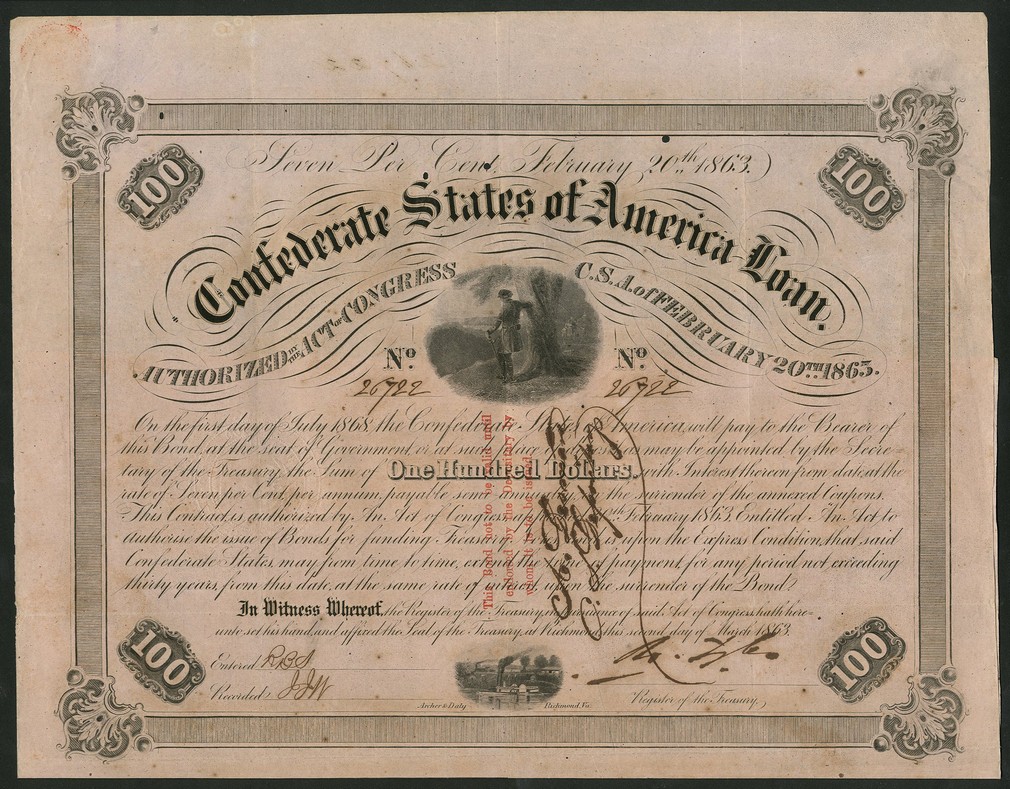 100
100
Seven Per Cent, February 20th 1863.
Confederate States of America Loan.
AUTHORIZED BY THE ACT OF CONGRESS C.S.A. of FEBRUARY 20TH 1863.
No. No.
26722 26722
On the first day of July 1868 the Confederate States America, will pay to the Bearer of
this Bond, at the seat of Government or at such place may be appointed by the Secre-
tary of the Treasury, the Sum of One Hundred Dollars. with Interest thereon from date, at the
rate of Seven per Cent, per annum, payable semi the surrender of the annexed Coupons.
This Contract is authorized by An Act of Congress February 1863, Entitled An Act to
authorise the issue of Bonds for funding Treasury is upon the Express Condition, that said
Confederate States, may from time to time, extend the payment, for any period not exceeding
thirty years, from this date, at the same rate of interest, upon the surrender of the Bond.
In Witness Whereof, the Register of the Treasury, in pursuance of said Act of Congress, hath here-
unto set his hand, and affixed the Seal of the Treasury, at Richmond, this second day of March 1863.
This Bond not to be valid until
endorsed by the Depositary by
whom it is to be issued
C. S. Depositary
100
100
Entered
Recorded
Register of the Treasury.
Archer & Daly Richmond, Va.